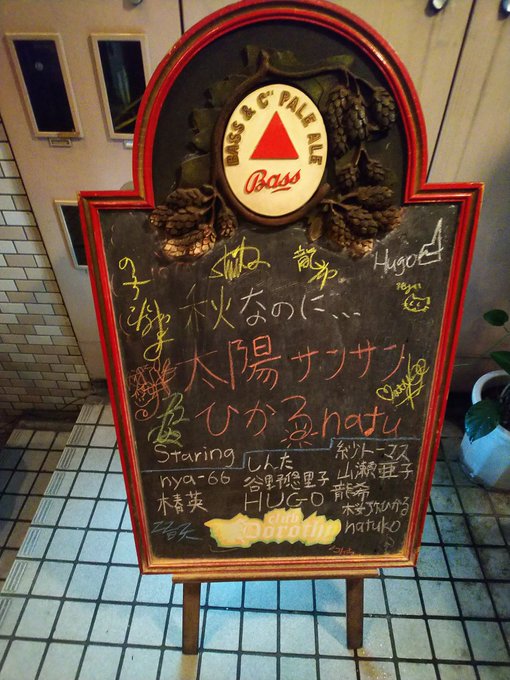 BASS & Co PALE ALE
Bass
龍希
Hugo
秋なのに...
太陽サンサン
ひかるnatu
Staring
nya-66
椿英
しんた
谷野悠里子
HUGO
紗トーマス
山瀬亜子
龍希
ひかる
natuko
club
Dorothy